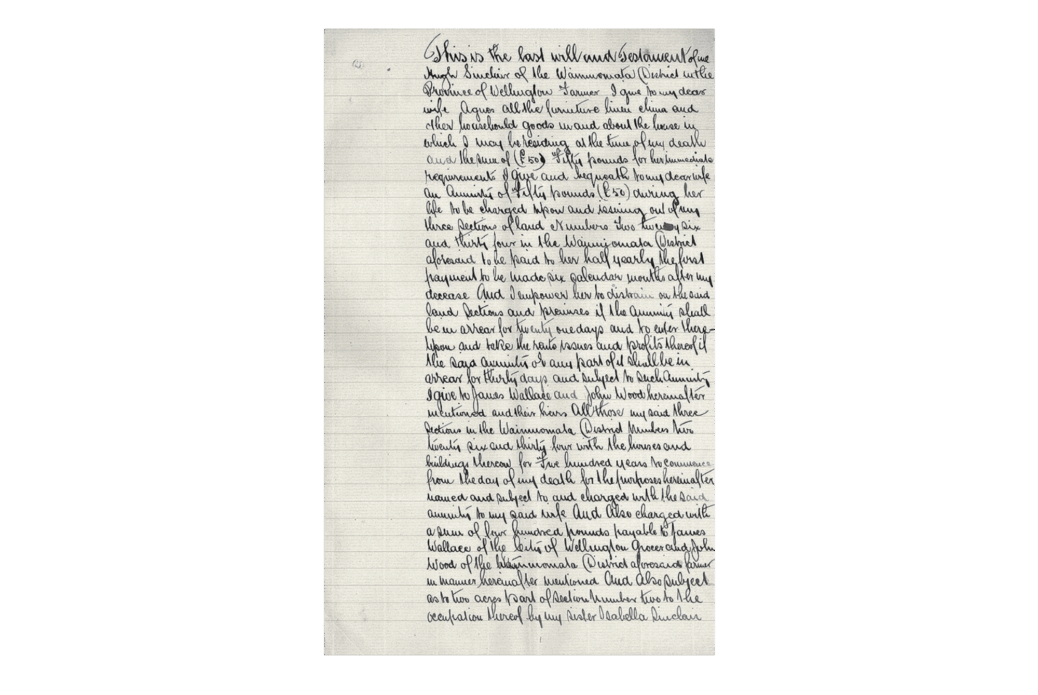 This is the last will and Testament of me
Hugh Sinclair of the Wainuiomata District in the
Province of Wellington Farmer I give to my dear
wife Agnes all the furniture linen china and
other household goods in and about the house in
which I may be residing at the time of my death
and the sum of (£50) Fifty pounds for her immediate
requirements I give and bequeath to my dear wife
an Annuity of Fifty pounds (£50) during her
life to be charged upon and issuing out of my
three Sections of land Numbers Two twenty six
and thirty four in the Wainuiomata District
aforesaid to be paid to her half yearly the first
payment to be made six calendar months after my
decease And I empower her to distrain on the said
land Sections and premises if the Annuity shall
be in arrear for twenty one days and to enter there-
upon and take the rents issues and profits thereof if
the said annuity or any part of it shall be in
arrear for thirty days and subject to such Annuity
I give to James Wallace and John Wood hereinafter
mentioned and their heirs All those my said three
Sections in the Wainuiomata District Numbers two
twenty six and thirty four with the houses and
buildings thereon for Five hundred years to commence
from the day of my death for the purposes hereinafter
named and subject to and charged with the said
annuity to my said wife And Also charged with
a sum of four hundred pounds payable to James
Wallace of the City of Wellington Grocer and John
Wood of the Wainuiomata District aforesaid farmer
in manner hereinafter mentioned And Also subject
as to two acres part of Section Number two to the
occupation thereof by my sister Isabella Sinclair